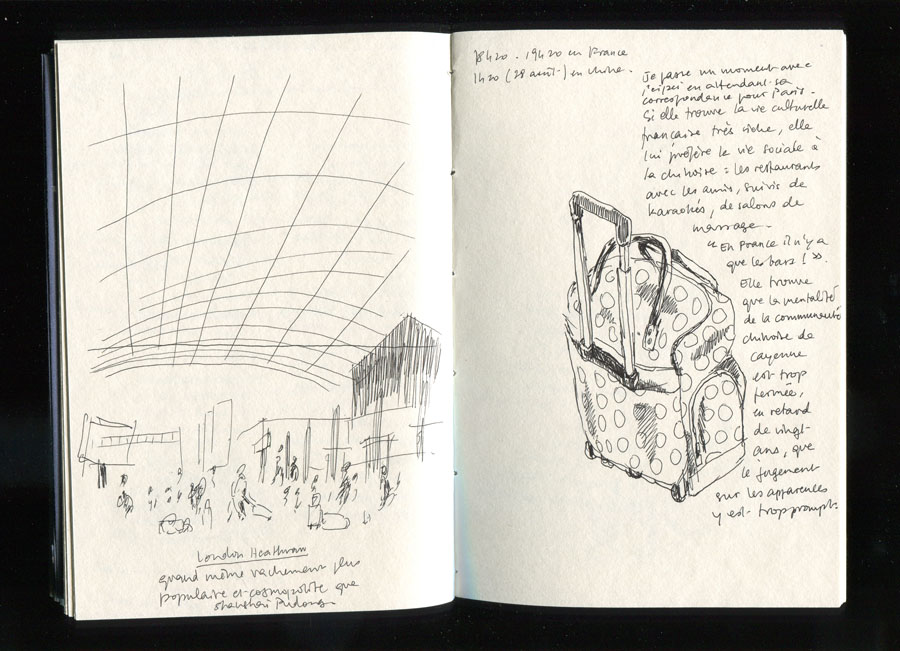 London Heathrow
quand même vachement plus
populaire et cosmopolite que
Shanghai Pudong
18h20 - 19h20 en France
1h20 (28 août) en Chine.
Je passe un moment avec
en attendant sa
correspondance pour Paris.
Si elle trouve la vie culturelle
française très riche, elle
lui préfère la vie sociale à
la chinoise : les restaurants
avec les amis, suivis de
karaokés, de salons de
massage.
"En France il n'y a
que les bars !".
Elle trouve
que la mentalité
de la communauté
chinoise de
Cayenne
est trop
fermée,
en retard
de vingt
ans, que
le jugement
sur les apparences
y est trop prompt.